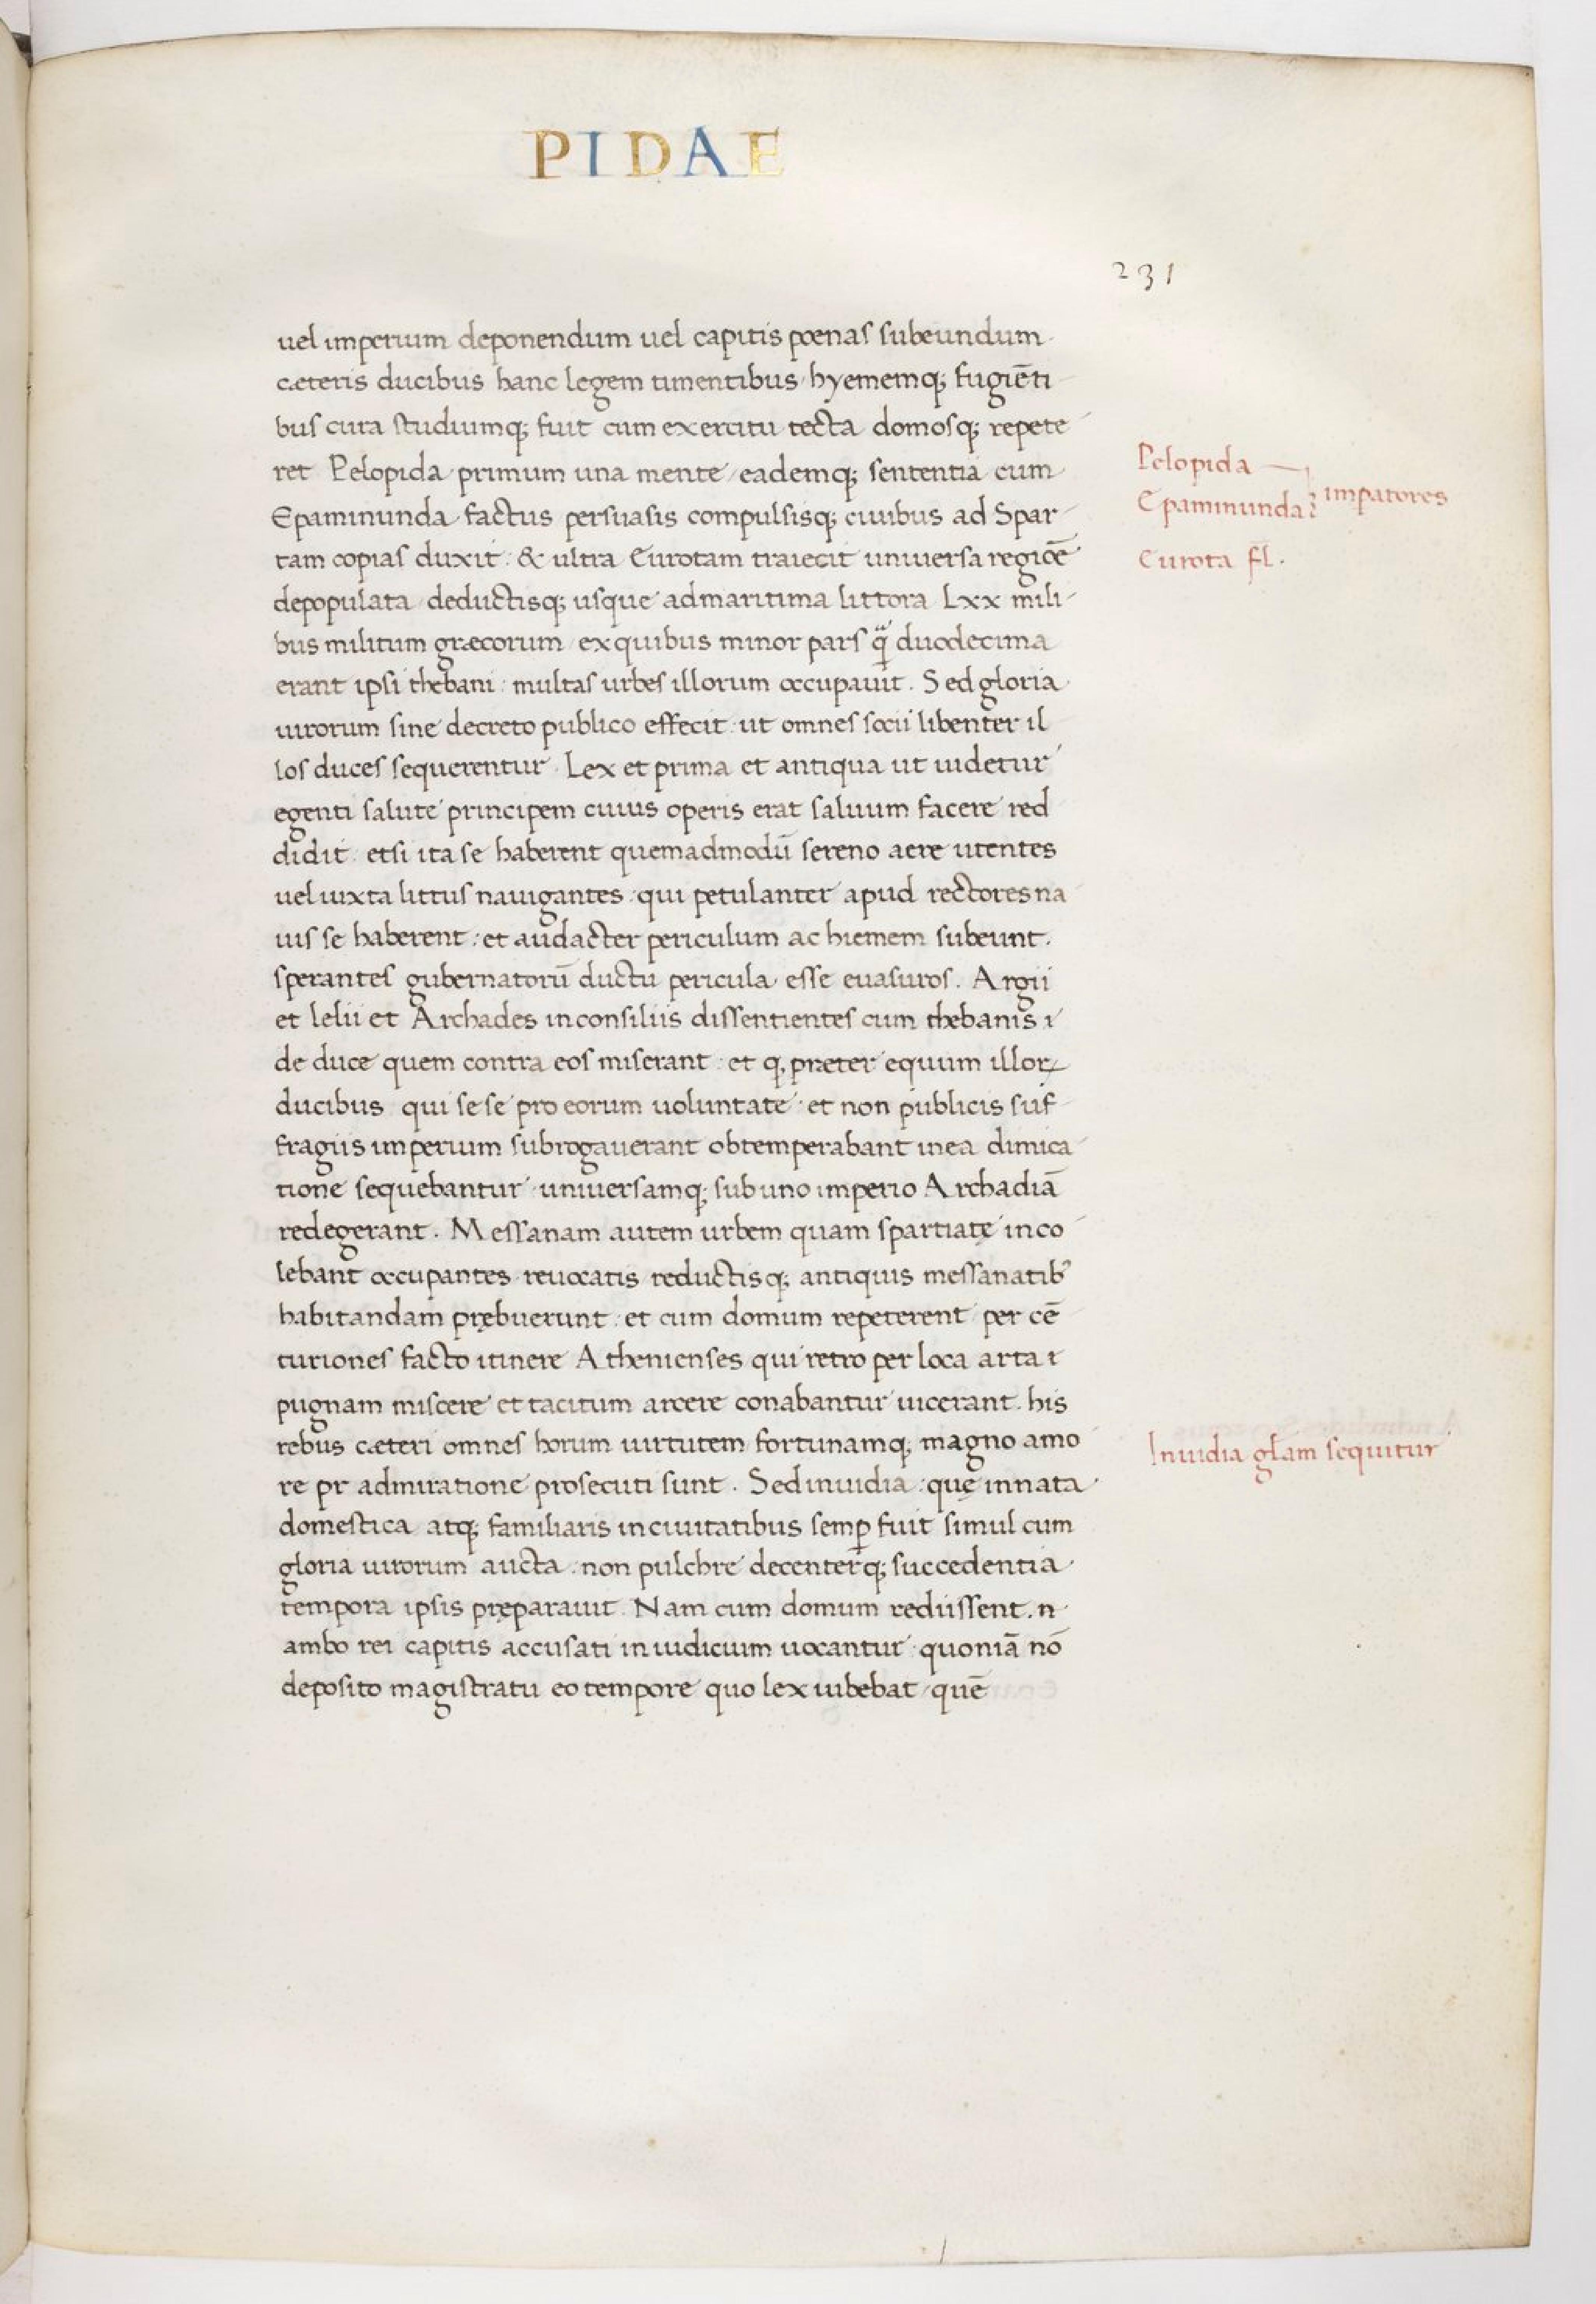 PIDAE
231
uel imperium deponendum uel capitis poenas subeundum·
cæteris ducibus hanc legem timentibus· hyememq; fugiẽti
bus cura studiumq; fuit cum exercitu tecta domosq; repete
ret Pelopida primum una mente eademq; sententia cum
Epaminunda factus persuasis compulsisq; ciuibus ad Spar
tam copias duxit: & ultra Eurotam traiecit uniuersa regiõe
depopulata deductisq; usque ad maritima littora Lxx mili
bus militum græcorum ex quibus minor pars q̃ duodecima
erant ipsi thebani: multas urbes illorum occupauit. Sed gloria
uirorum sine decreto publico effecit ut omnes socii libenter il
los duces sequerentur. Lex et prima et antiqua ut uidetur
egenti salute principem cuius operis erat saluum facere red
didit: etsi ita se haberent quemadmodũ sereno aere utentes
uel iuxta littus nauigantes: qui petulanter apud rectores na
uis se haberent: et audacter periculum ac hiemem subeunt.
sperantes gubernatorũ ductu pericula esse euasuros. Argii
et lelii et Archades in consiliis dissentientes cum thebanis ⁊
de duce quem contra eos miserant: et q; preter equum illorꝝ
ducibus qui sese pro eorum uoluntate et non publicis suf
fragiis imperium subrogauerant obtemperabant in ea dimica
tione sequebantur uniuersamq; sub uno imperio Archadiã
redegerant. Messanam autem urbem quam spartiatę inco
lebant occupantes reuocatis reductisq; antiquis messanatib᾽
habitandam prębuerunt: et cum domum repeterent per cẽ
turiones facto itinere Athenienses qui retro per loca arta ⁊
pugnam miscere et tacitum arcere conabantur uicerant. his
rebus cæteri omnes horum uirtutem fortunamq; magno amo
re pr admiratione prosecuti sunt. Sed inuidia: quę innata
domestica atq; familiaris in ciuitatibus semꝑ fuit simul cum
gloria uirorum aucta: non pulchre decenterq; succedentia
tempora ipsis pręparauit. Nam cum domum rediissent. n
ambo rei capitis accusati in iudicium uocantur quoniã nõ
deposito magistratu eo tempore quo lex iubebat quẽ
Pelopida
Epaminunda
impatores
Eurota fl̄.
Inuidia gl̄am sequitur